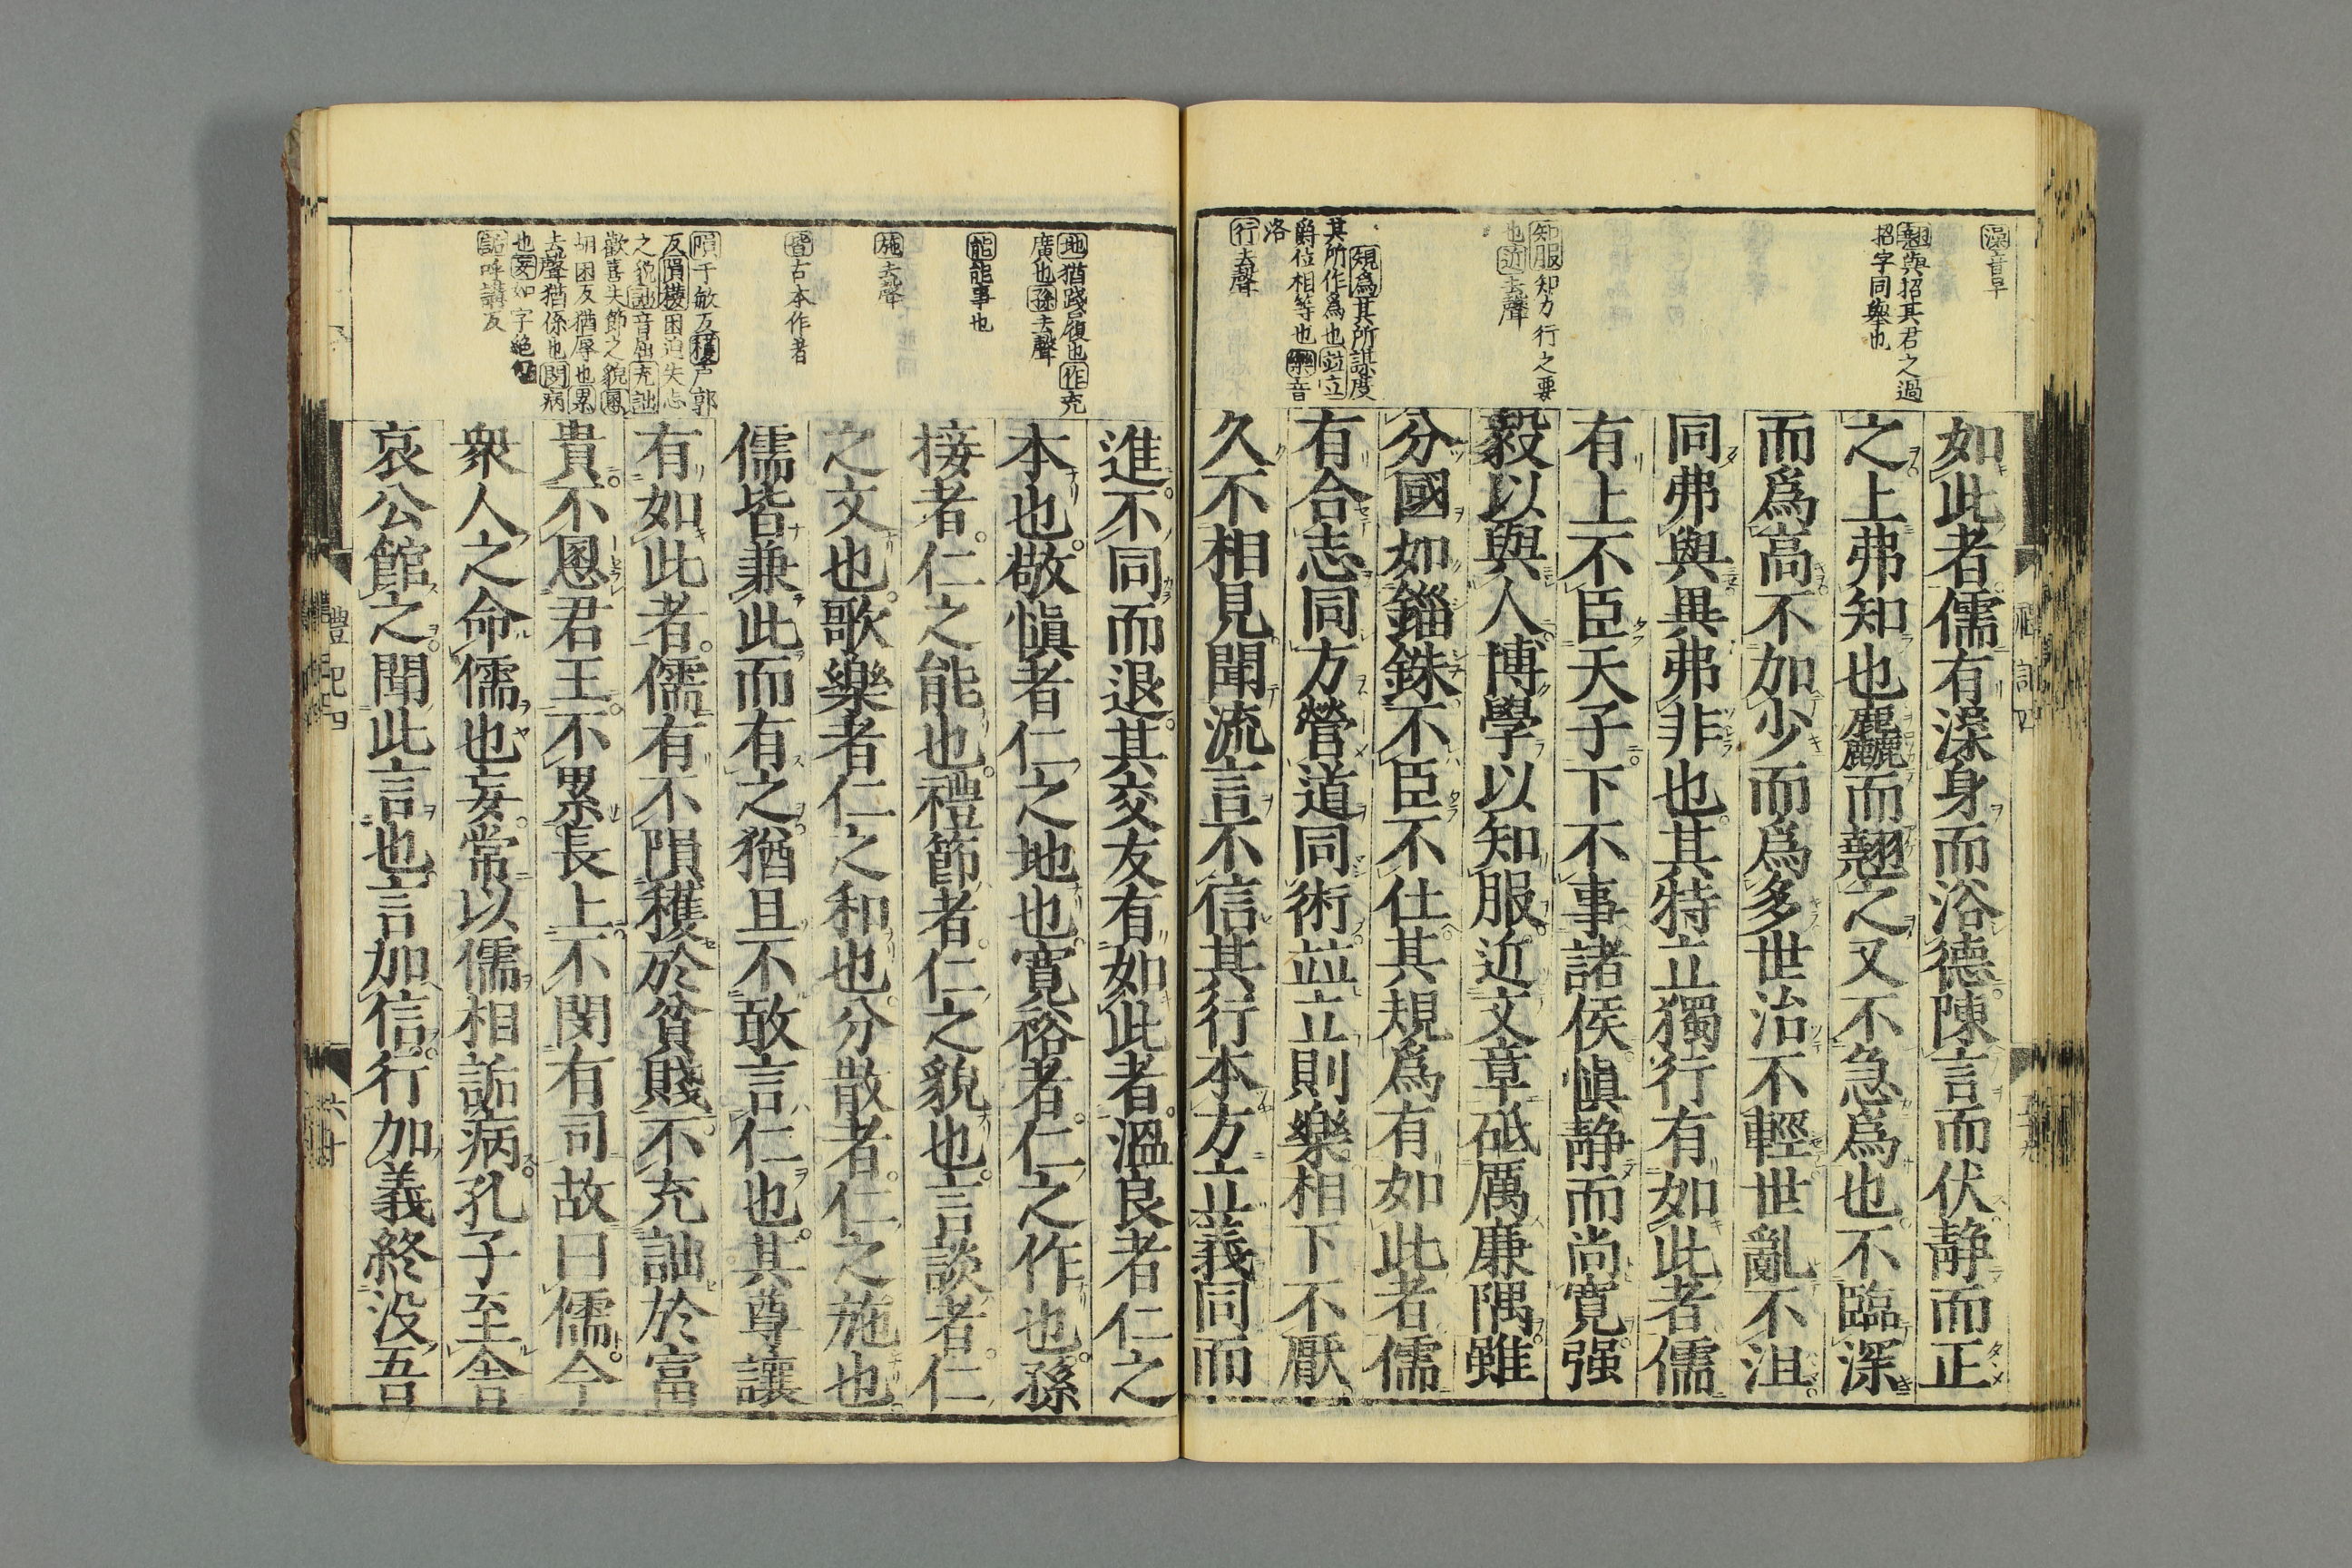 澡音早
翹與招其君之過
招字同擧也
知服知力行之要
也近去聲
規爲其所謀度
其所作爲也竝立
爵位相等也樂音
洛
行去聲
如此者儒有澡身而浴德陳言而伏静而正
之上弗知也麤而翹之又不急爲也不臨深
而爲高不加少而爲多世治不輕世亂不沮
同弗與異弗非也其特立獨行有如此者儒
有上不臣天子下不事諸侯愼静而尚寛强
毅以與人博學以知服近文章砥厲廉隅雖
分國如錙銖不臣不仕其規爲有如此者儒
有合志同方營道同術竝立則樂相下不厭
久不相見聞流言不信其行本方立義同而
地猶踐履也作充
廣也孫去聲
能能事也
施去聲
皆古本作者
隕于敏反穫戸郭
反隕穫困迫失志
之貌詘音屈充詘
歡喜失節之貌慁
胡困反猶辱也累
去聲猶係也閔病
也妄如字絶句
詬呼講反
進不同而退其交友有如此者溫良者仁之
本也敬愼者仁之地也寛裕者仁之作也孫
接者仁之能也禮節者仁之貌也言談者仁
之文也歌樂者仁之和也分散者仁之施也
儒皆兼此而有之猶且不敢言仁也其尊讓
有如此者儒有不隕穫於貧賤不充詘於富
貴不慁君王不累長上不閔有司故曰儒今
衆人之命儒也妄常以儒相詬病孔子至舍
哀公館之聞此言也言加信行加義終没吾
禮記四
六十